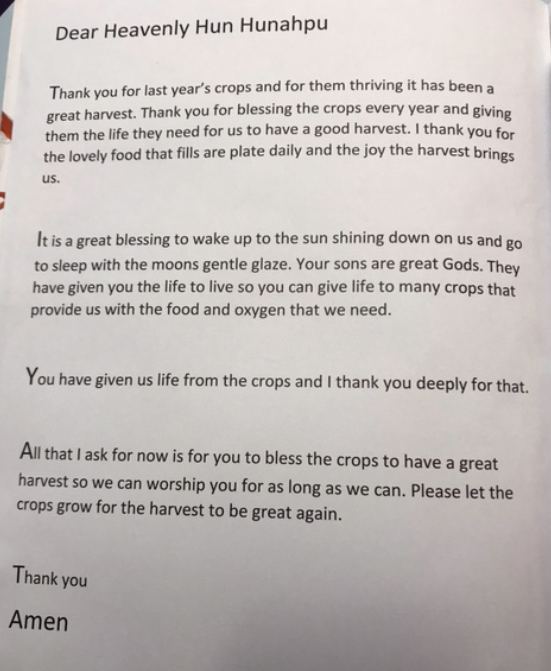 Dear Heavenly Hun Hunahpu
Thank you for last year's crops and for them thriving it has been a
great harvest. Thank you for blessing the crops every year and giving
them the life they need for us to have a good harvest. I thank you for
the lovely food that fills are plate daily and the joy the harvest brings
us.
It is a great blessing to wake up to the sun shining down on us and go
to sleep with the moons gentle glaze. Your sons are great Gods. They
have given you the life to live so you can give life to many crops that
provide us with the food and oxygen that we need.
You have given us life from the crops and I thank you deeply for that.
All that I ask for now is for you to bless the crops to have a great
harvest so we can worship you for as long as we can. Please let the
crops grow for the harvest to be great again.
Thank you
Amen